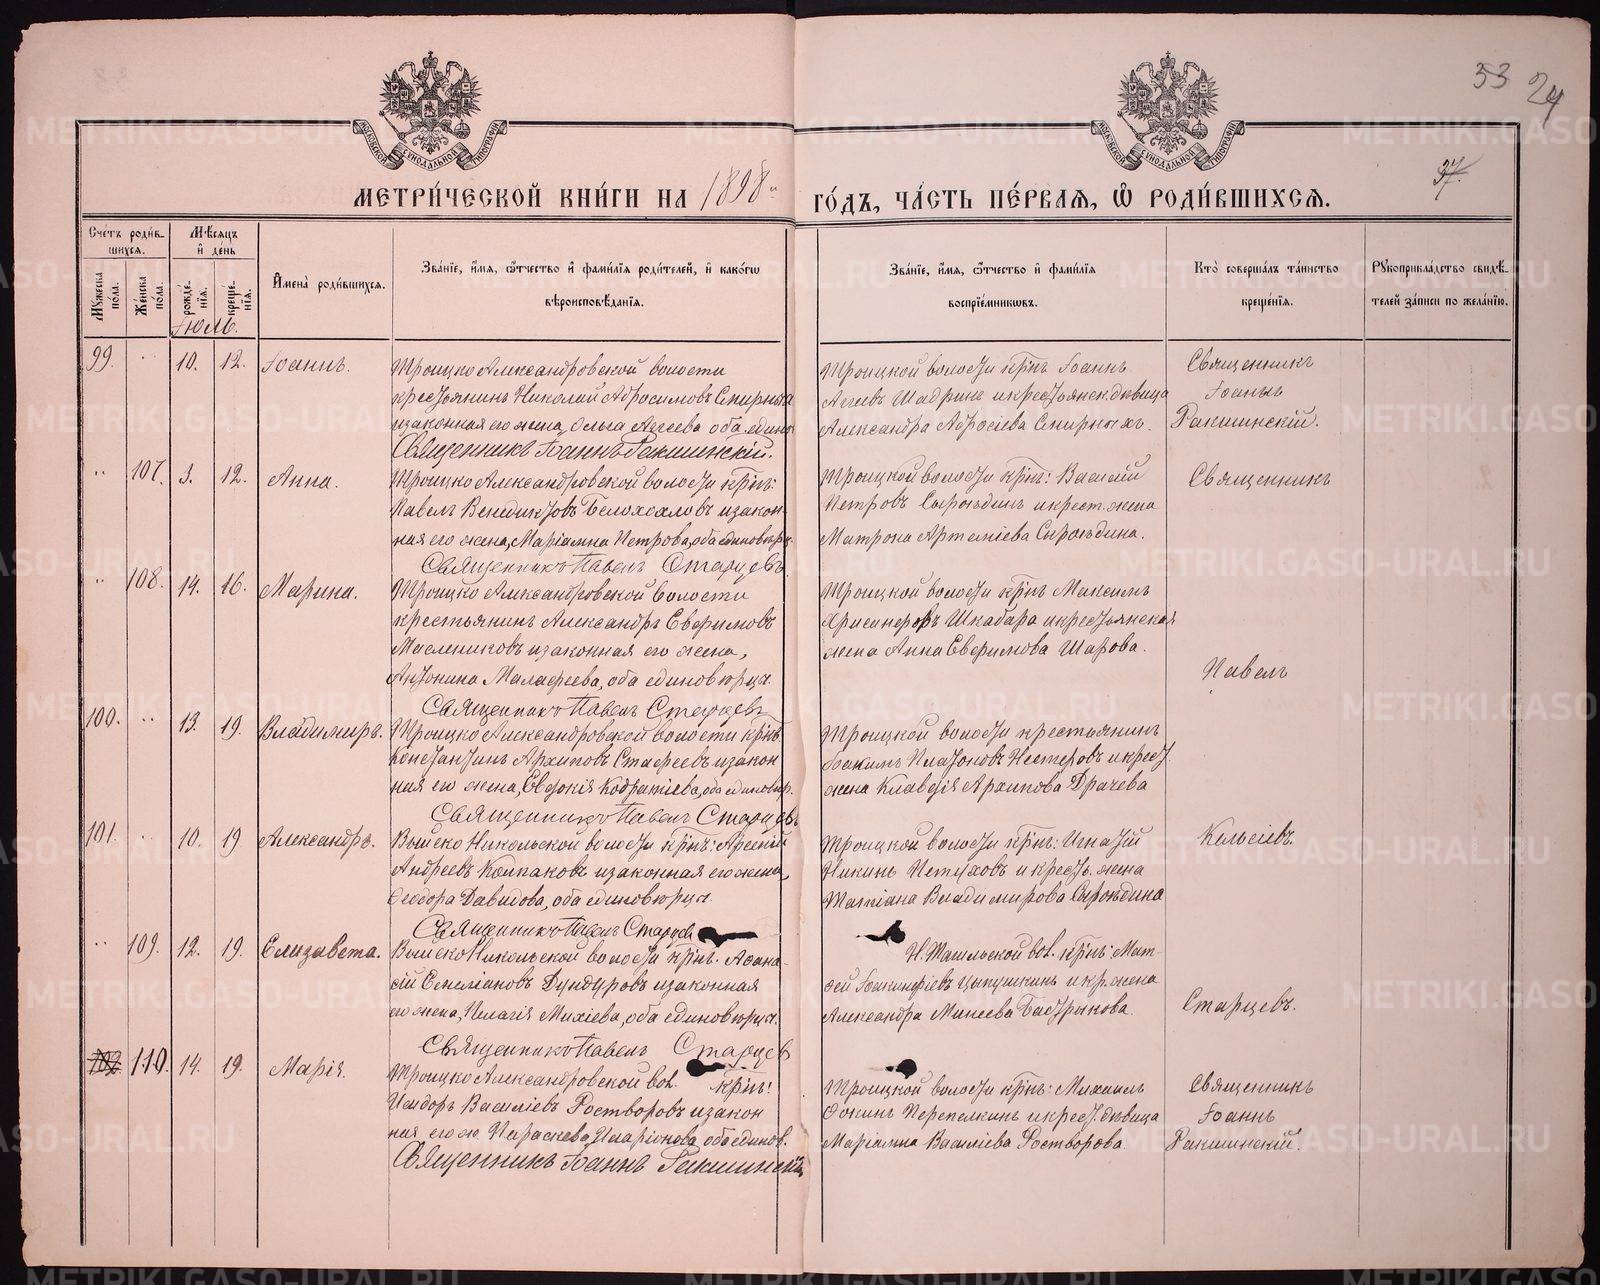 53 24
37.
МЕТРИ́ЧЕСКОЙ КНИ́ГИ НА 1898й ГО́ДЪ, ЧА́СТЬ ПЕ́РВАЯ, Ѽ РОДИ́ВШИХСЯ.
Сче́тъ роди́в-
шихся.
Мѣ́сяцъ
и҆ де́нь
Мꙋ́жеска по́ла.
Же́нска по́ла.
рожде́-
нїѧ.
креще́-
нїѧ.
И҆мена̀ роди́вшихся.
Зва́нїе, и҆́мя, ѻ҆́тчество и҆ фами́лїя роди́телей, и҆ како́гѡ
вѣроисповѣ́данїя.
Зва́нїе, и҆́мя, ѻ҆́тчество и҆ фами́лїя
воспрїе́мникѡвъ.
Кто̀ соверша́лъ та́инство
креще́нїя.
Рꙋкоприкла́дство свидѣ́-
телей за́писи по жела́нїю.
Іюль.
99. 10. 12. Іоаннъ.
Троицко Александровской волости
крестьянинъ Николай Абросимовъ Смирныхъ
и законная его жена, Ольга Агеева оба един.
Священникъ Іоаннъ Ракшинскій.
Троицкой волости крнъ Іоаннъ
Агеевъ Шадринъ и крестьянск. дѣвица
Александра Абросiева Смирныхъ.
Священникъ
Іоаннъ
Ракшинскій.
" 107. 3. 12. Анна.
Троицко Александровской волости крнъ:
Павелъ Венедиктовъ Белохвловъ и закон-
ная его жена, Маріамна Петрова, оба единовѣрц.
Священникъ Павелъ Старцевъ.
Троицкой волости крнъ: Василій
Петровъ Сыроѣдинъ и крест. жена
Матрона Артеміева Сыроѣдина.
Священникъ
" 108. 14. 16. Марина.
Троицко Александровской волости
крестьянинъ Александръ Евфимовъ
Маслениковъ и законная его жена,
Антонина Малафеева, оба единовѣрцы.
Священникъ Павелъ Старцевъ
Троицкой волости крнъ Максимъ
Хрисанфовъ Шкабара и крестьянская
жена Анна Евфимова Шарова.
Павелъ
100. " 13. 19. Владимиръ.
Троицко Александровской волости крнъ
Константинъ Архиповъ Стафеевъ и закон
ная его жена, Евдокія Кодратіева, оба единовѣр.
Священникъ Павелъ Старцевъ
Троицкой волости крестьянинъ
Іоакимъ Платоновъ Нестеровъ и крест.
жена Клавдія Архипова Драчева
101. " 10. 19 Александръ.
Выйско Никольской волости крнъ: Арсеній
Андреевъ Колпаковъ и законная его жена,
Ѳеодора Давидова, оба единовѣрцы.
Священникъ Павелъ Старцевъ
Троицкой волости крнъ: Игнатій
Никинъ Петуховъ и крестъ. жена
Татіана Владимирова Сыроѣдина
Кельсіевъ.
" 109. 12. 19. Елизавета.
Выйско Никольской волости крнъ. Аѳана-
сій Емеліановъ Дундуровъ и законная
его жена, Пелагія Михіева, оба единовѣрцы.
Священникъ Павелъ Старцев
Н. Тагильской вол. крнъ: Мат-
ѳей Іоакинфіевъ Цыпушкинъ и кр. жена
Александра Минеева Бастрыкова.
Старцевъ.
102. 110. 14. 19. Марія.
Троицко Александровской вол. крнъ:
Исидоръ Василіевъ Ростворовъ и закон
ная его ж. Параскева Иларіонова, оба единов.
Священникъ Іоаннъ Ракшинскій
Троицкой волости крнъ: Михаилъ
Ѳокинъ Перепелкинъ и крест. дѣвица
Маріамна Василіева Ростворова.
Священникъ
Іоаннъ
Ракшинскій.